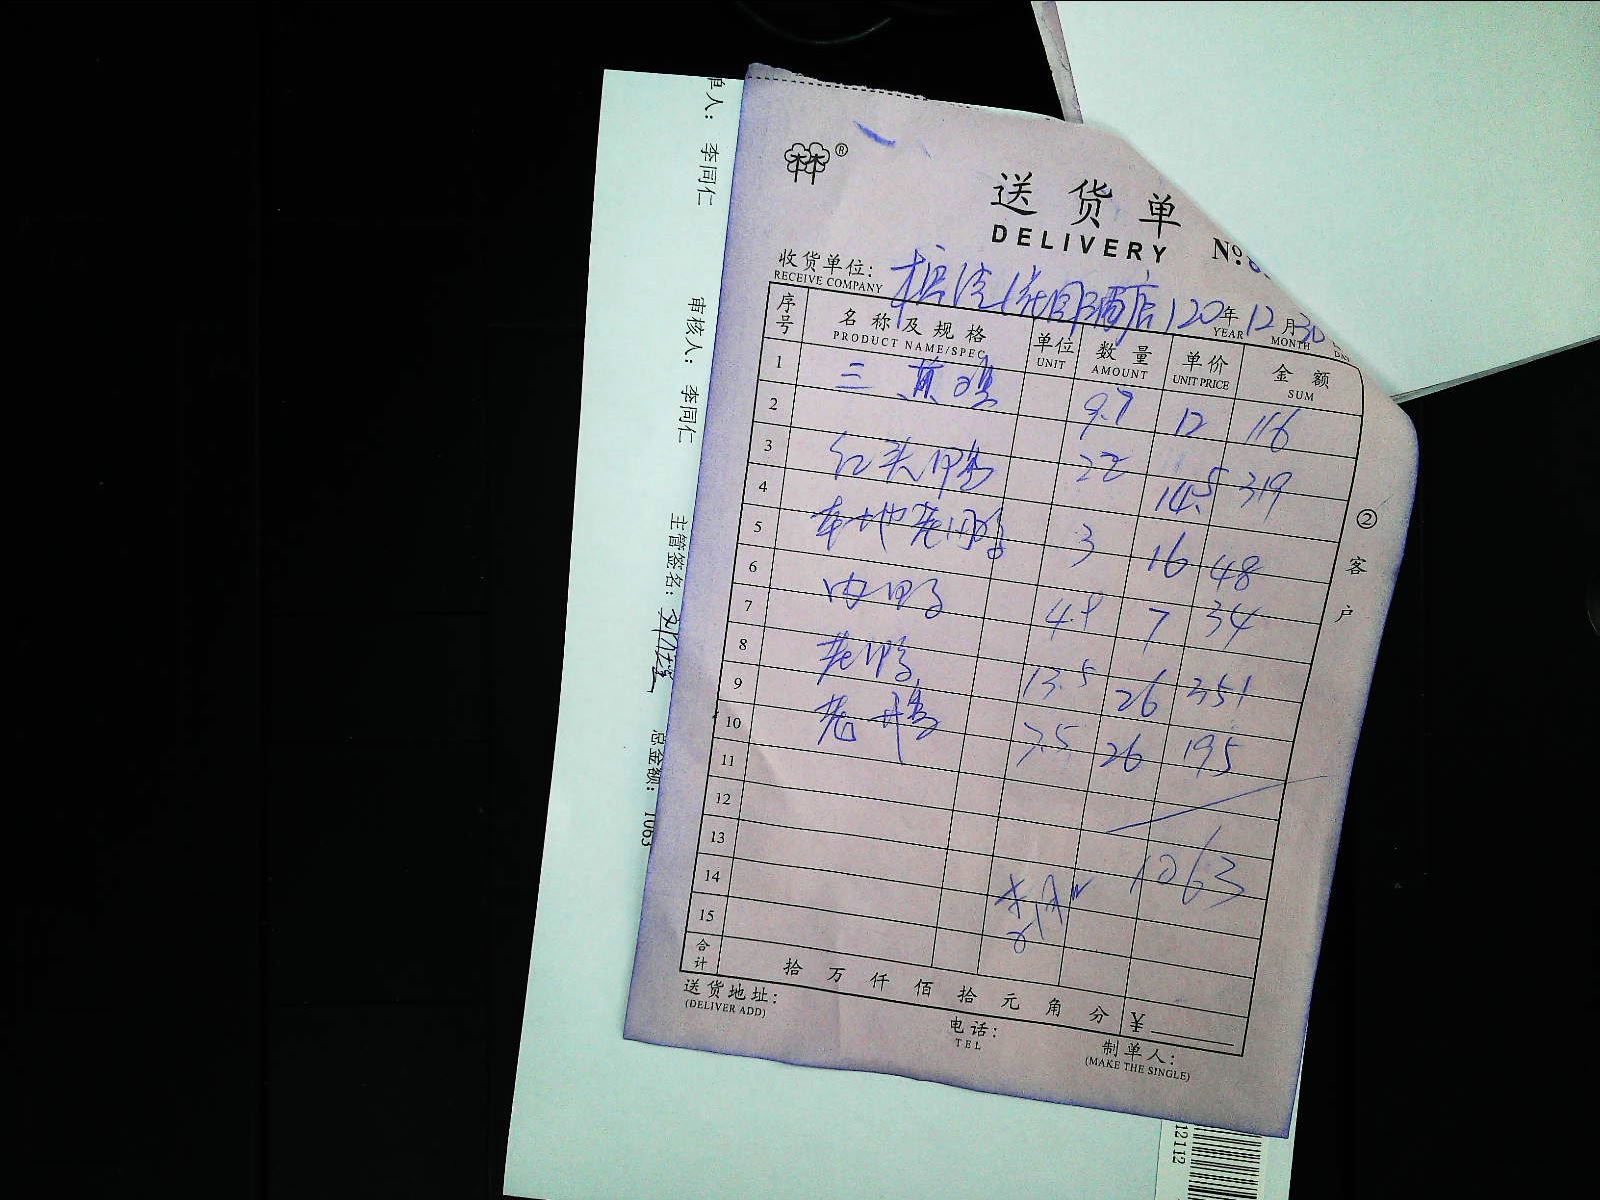 送货单
DELIVERY
№:
收货单位:
RECEIVE COMPANY
酒店 20年12月30
YEAR MONTH DAY
序号 名称及规格 单位 数量 单价 金额
PRODUCT NAME/SPEC UNIT AMOUNT UNIT PRICE SUM
1 三黄鸡 9.7 12 116
2
3 红头鸭 22 14.5 319
4 本地老 3 16 48
5
6 内鸭 4.9 7 34
7
8 老鸭 13.5 26 351
9 老 7.5 26 195
10
11
12
13 1063
14
15
合计 拾 万 仟 佰 拾 元 角 分 ¥
送货地址:
(DELIVER ADD)
电话:
TEL
制单人:
(MAKE THE SINGLE)
② 客户
单人: 李同仁
审核人: 李同仁
主管签名:
总金额: 1063
12112